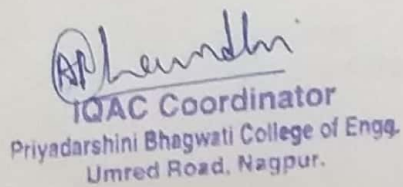 IQAC Coordinator
Priyadarshini Bhagwati College of Engg.
Umred Road, Nagpur.